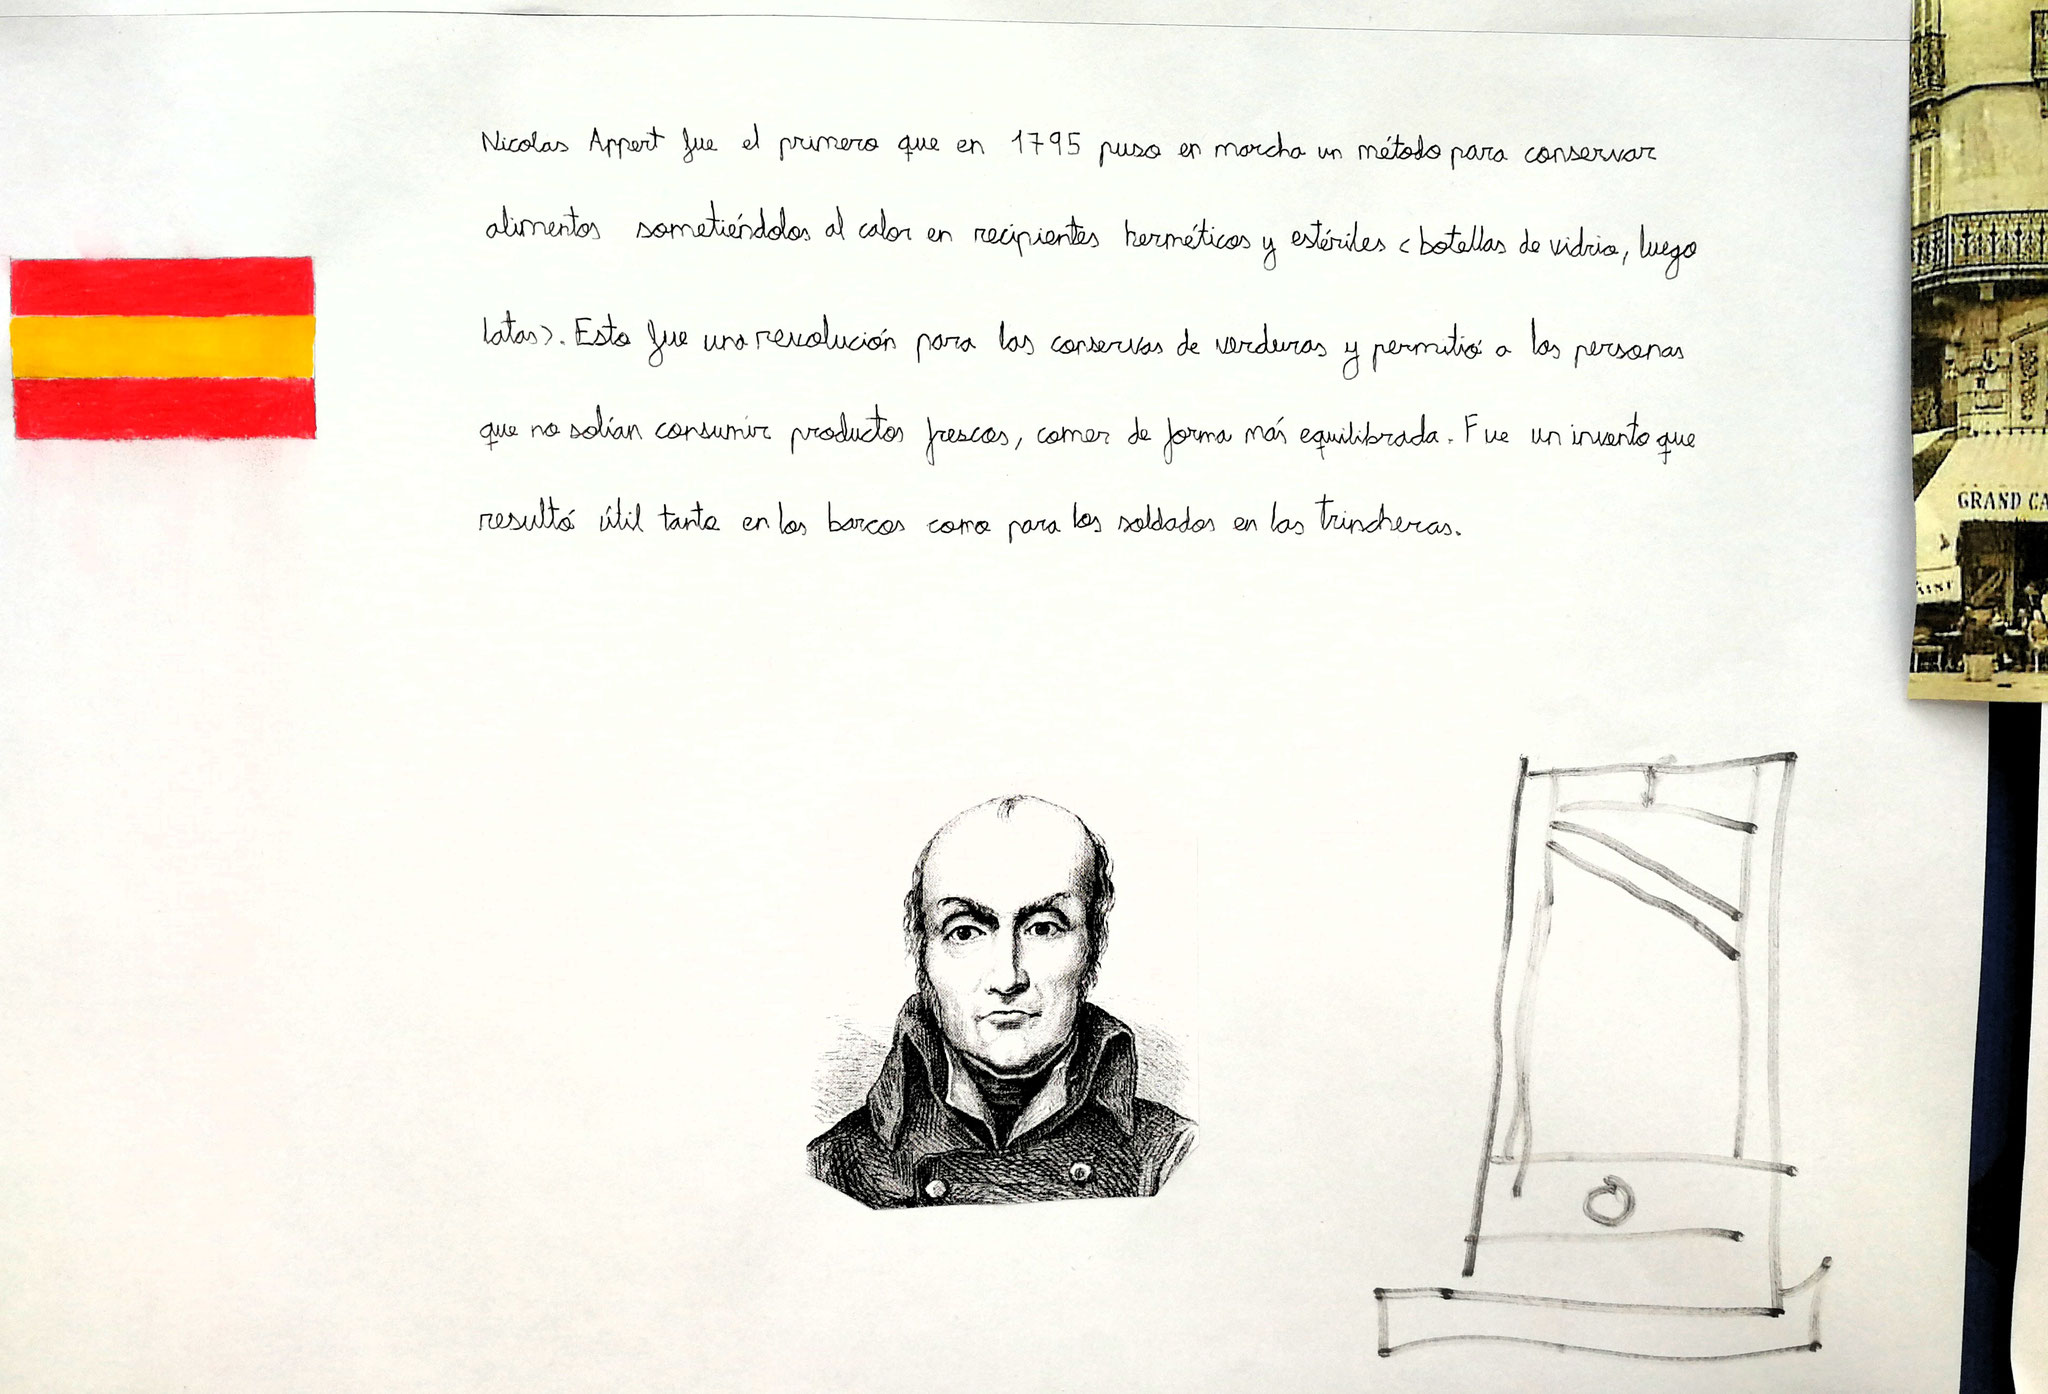 Nicolas Appert fue el primero que en 1795 puso en marcha un método para conservar
alimentos sometiéndolos al calor en recipientes herméticos y estériles < botellas de vidrio, luego
latas>. Esto fue una revolución para las conservas de verduras y permitió a las personas
que no solían consumir productos frescos, comer de forma más equilibrada. Fue un invento que
resultó útil tanto en los barcos como para los soldados en las trincheras.
GRAND CA